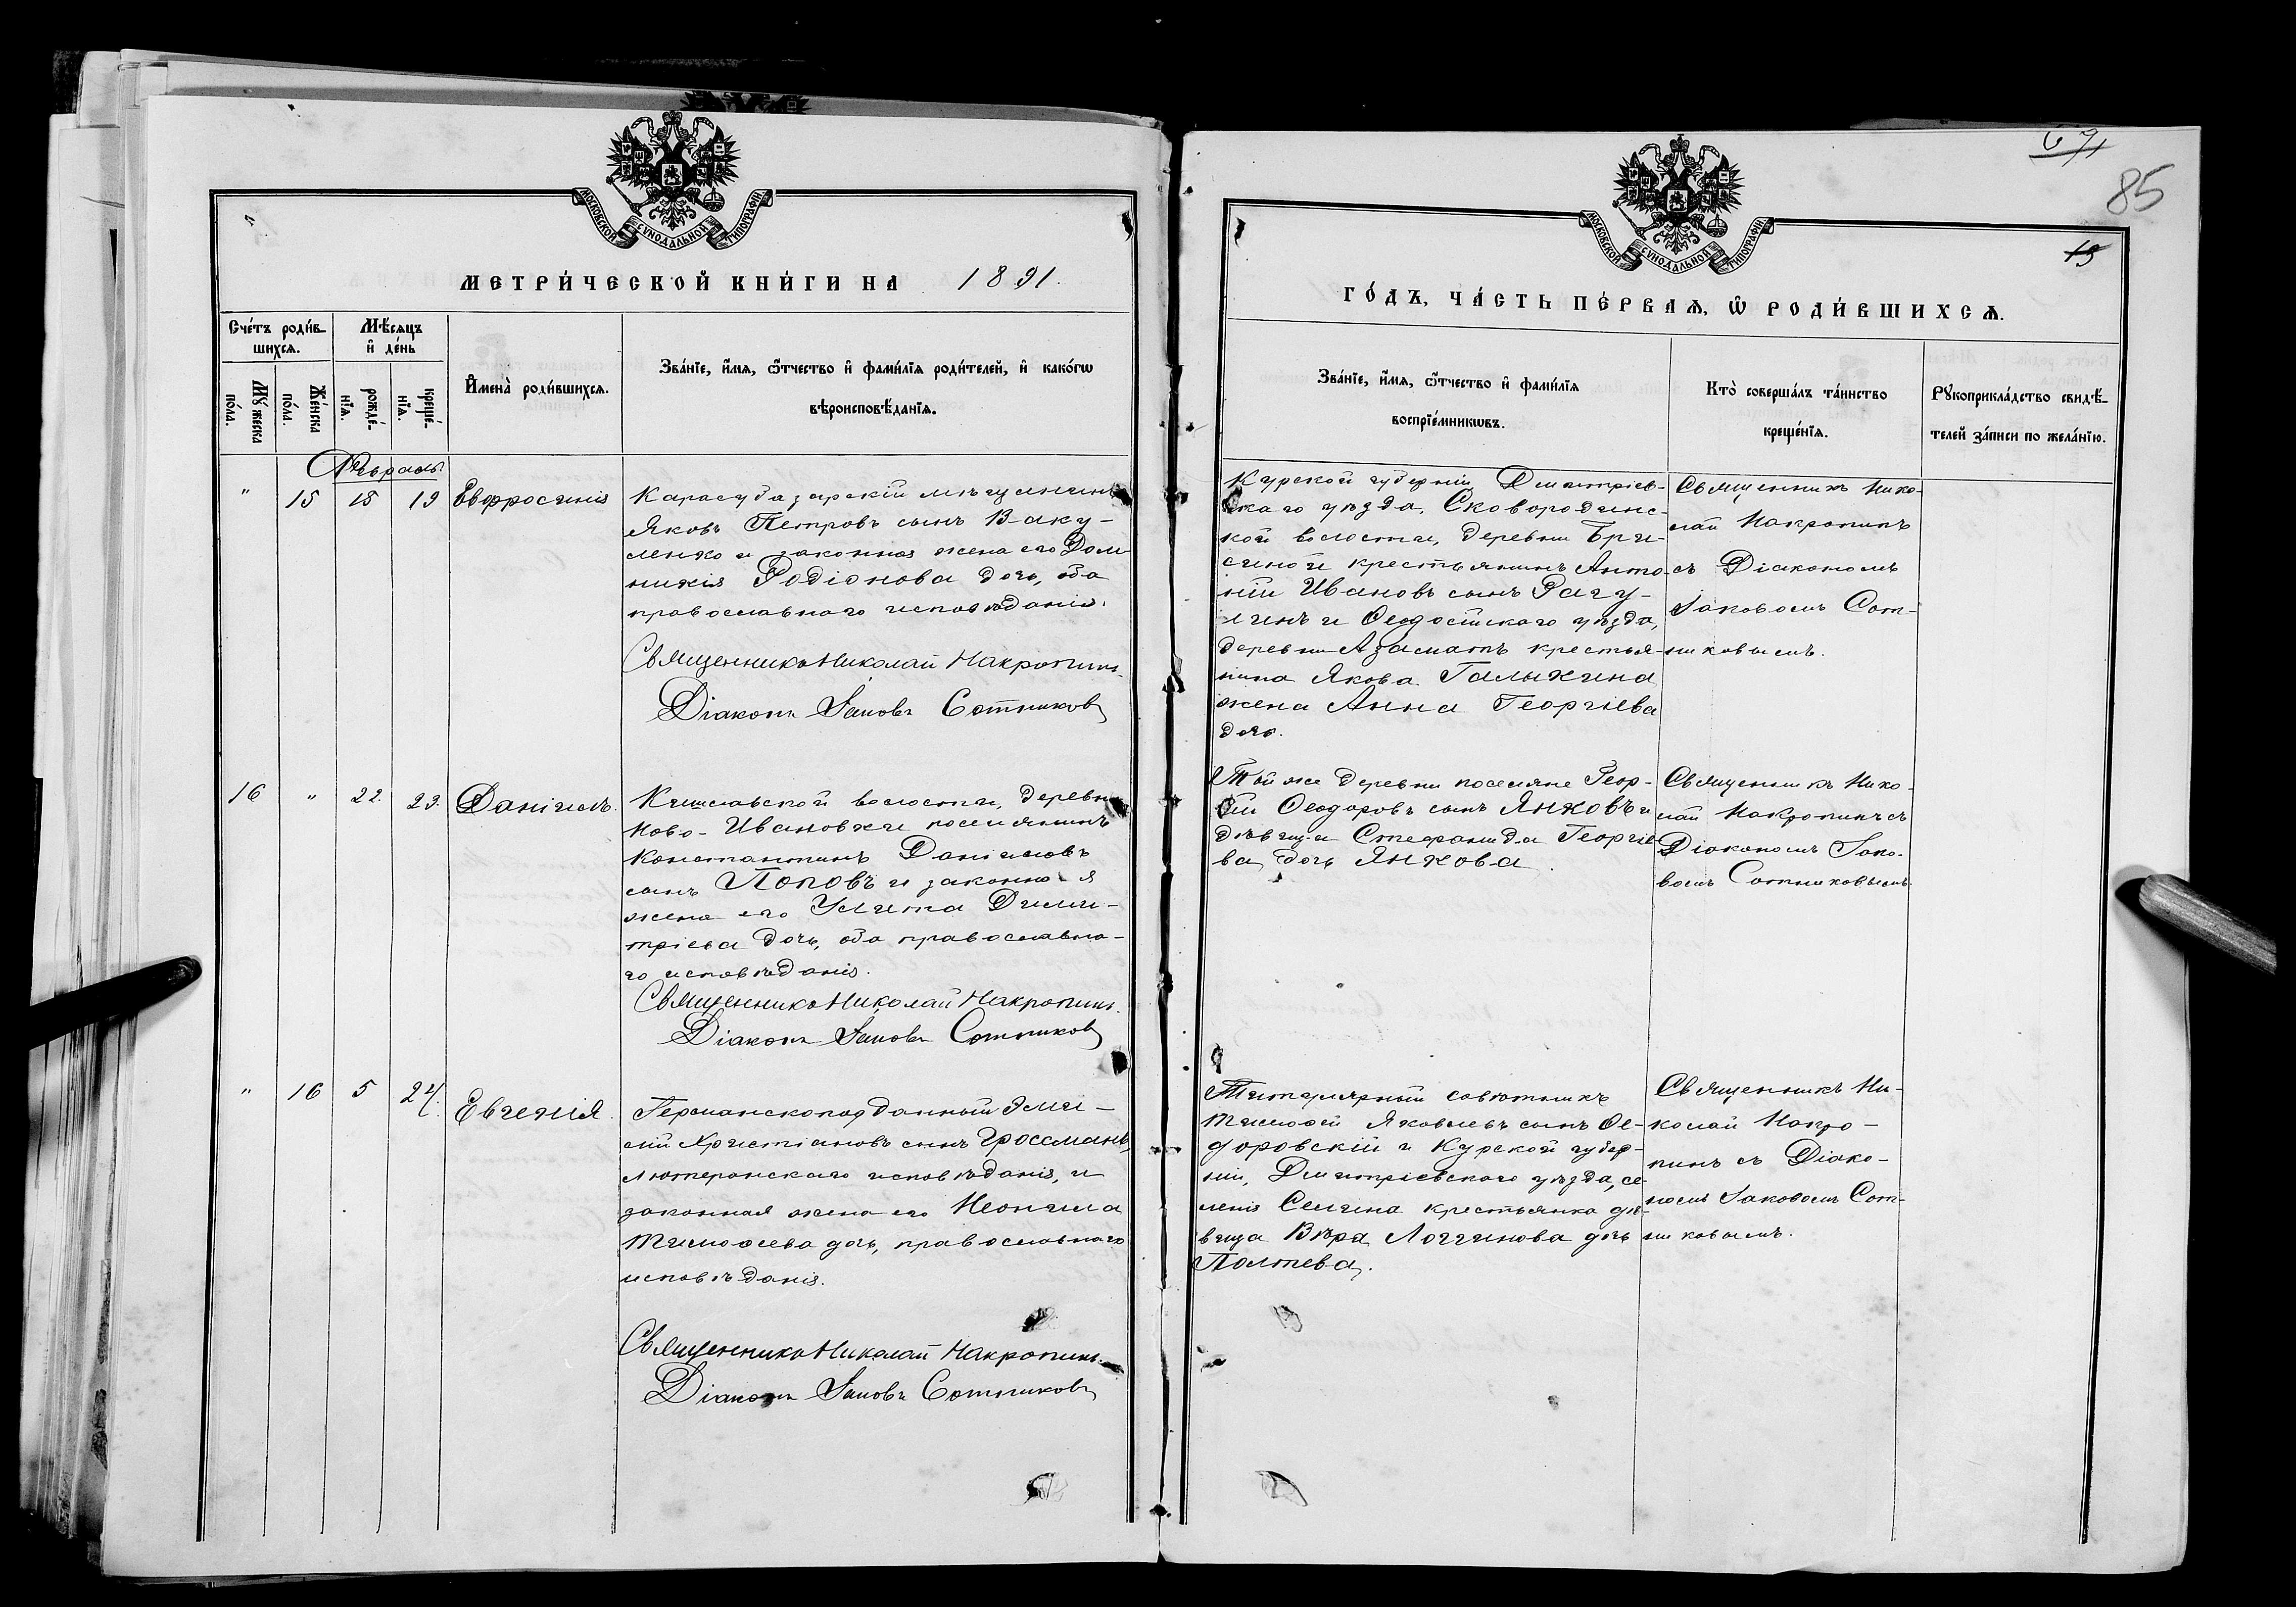 МОСКОВСКОЙ СѴНОДАЛЬНОЙ ТИПОГРАФІИ
МЕТРИ́ЧЕСКОЙ КНИ́ГИ НА 1891.
Сче́тъ роди́вшихся.
Мѣ́сяцъ и҆ де́нь
Мꙋ́жеска по́ла.
Же́нска по́ла.
рожде́нїя.
креще́нїя.
И҆мена̀ роди́вшихся.
Зва́нїе, и҆́мя, ѻ҆́тчество и҆ фами́лїя роди́телей, и҆ како́гѡ
вѣроисповѣ́данїя.
Февраль
" 15 18 19 Евфросинія
Карасубазарскій мѣщанинъ
Яковъ Петровъ сынъВаку-
ленко и законная жена его Дом-
никія Родіонова дочь, оба
православнаго исповѣданія.
Священникъ Николай Макропинъ.
Діаконъ Іаковъ Сотниковъ
16 " 22. 23. Даніилъ.
Кишлавской волости, деревни
Ново-Ивановки поселянинъ
Константинъ Даніиловъ
сынъ Поповъ и законная
жена его Улита Дими-
тріева дочь, оба православна-
го исповѣданія.
Священникъ Николай Макропинъ.
Діаконъ Іаковъ Сотниковъ
" 16 5 24. Евгенія
Германскоподданный Эми-
лій Христіановъ сынъ Гроссманъ,
лютеранскаго исповѣданія, и
законная жена его Неонила
Тимофеева дочь, православнаго
исповѣданія.
Священникъ Николай Макропинъ.
Діаконъ Іаковъ Сотниковъ
85
13
МОСКОВСКОЙ СѴНОДАЛЬНОЙ ТИПОГРАФІИ
ГО́ДЪ, ЧА́СТЬ ПЕ́РВАЯ, Ѡ҆ РОДИ́ВШИХСЯ.
Зва́нїе, и҆́мя, ѻ҆́тчество и҆ фами́лїя
воспрїе́мникѡвъ.
Кто̀ соверша́лъ та́инство
креще́нїя.
Рꙋкоприкла́дство свидѣ́-
телей за́писи по жела́нїю.
Курской губерніи Дмитріев-
скаго уѣзда, Сковородинс-
кой волости, деревни Бри-
синой крестьянинъ Анто-
ній Ивановъ сынъ Рагу-
линъ и Ѳеодосійскаго уѣзда,
деревни Азаматъ крестья-
нина Якова Галыкина
жена Анна Георгіева
дочь.
Священникъ Нико-
лай Макропинъ
съ Діакономъ
Іаковомъ Сот-
никовымъ.
Той же деревни поселяне Геор-
гій Ѳеодоровъ сынъ Янковъ и
дѣвица Стефанида Георгіе-
ва дочь Янкова.
Священникъ Нико-
лай Макропинъ съ
Діакономъ Іако-
вомъ Сотниковымъ.
Титулярный совѣтникъ
Тимофей Яковлевъ сынъ Ѳе-
доровскій и Курской губер-
ніи, Дмитріевскаго уѣзда, се-
ленія Селина крестьянка дѣ-
вица Вѣра Логгинова дочь
Полтева.
Священникъ Ни-
колай Макро-
пинъ съ Діако-
номъ Іаковомъ Сот-
никовымъ.